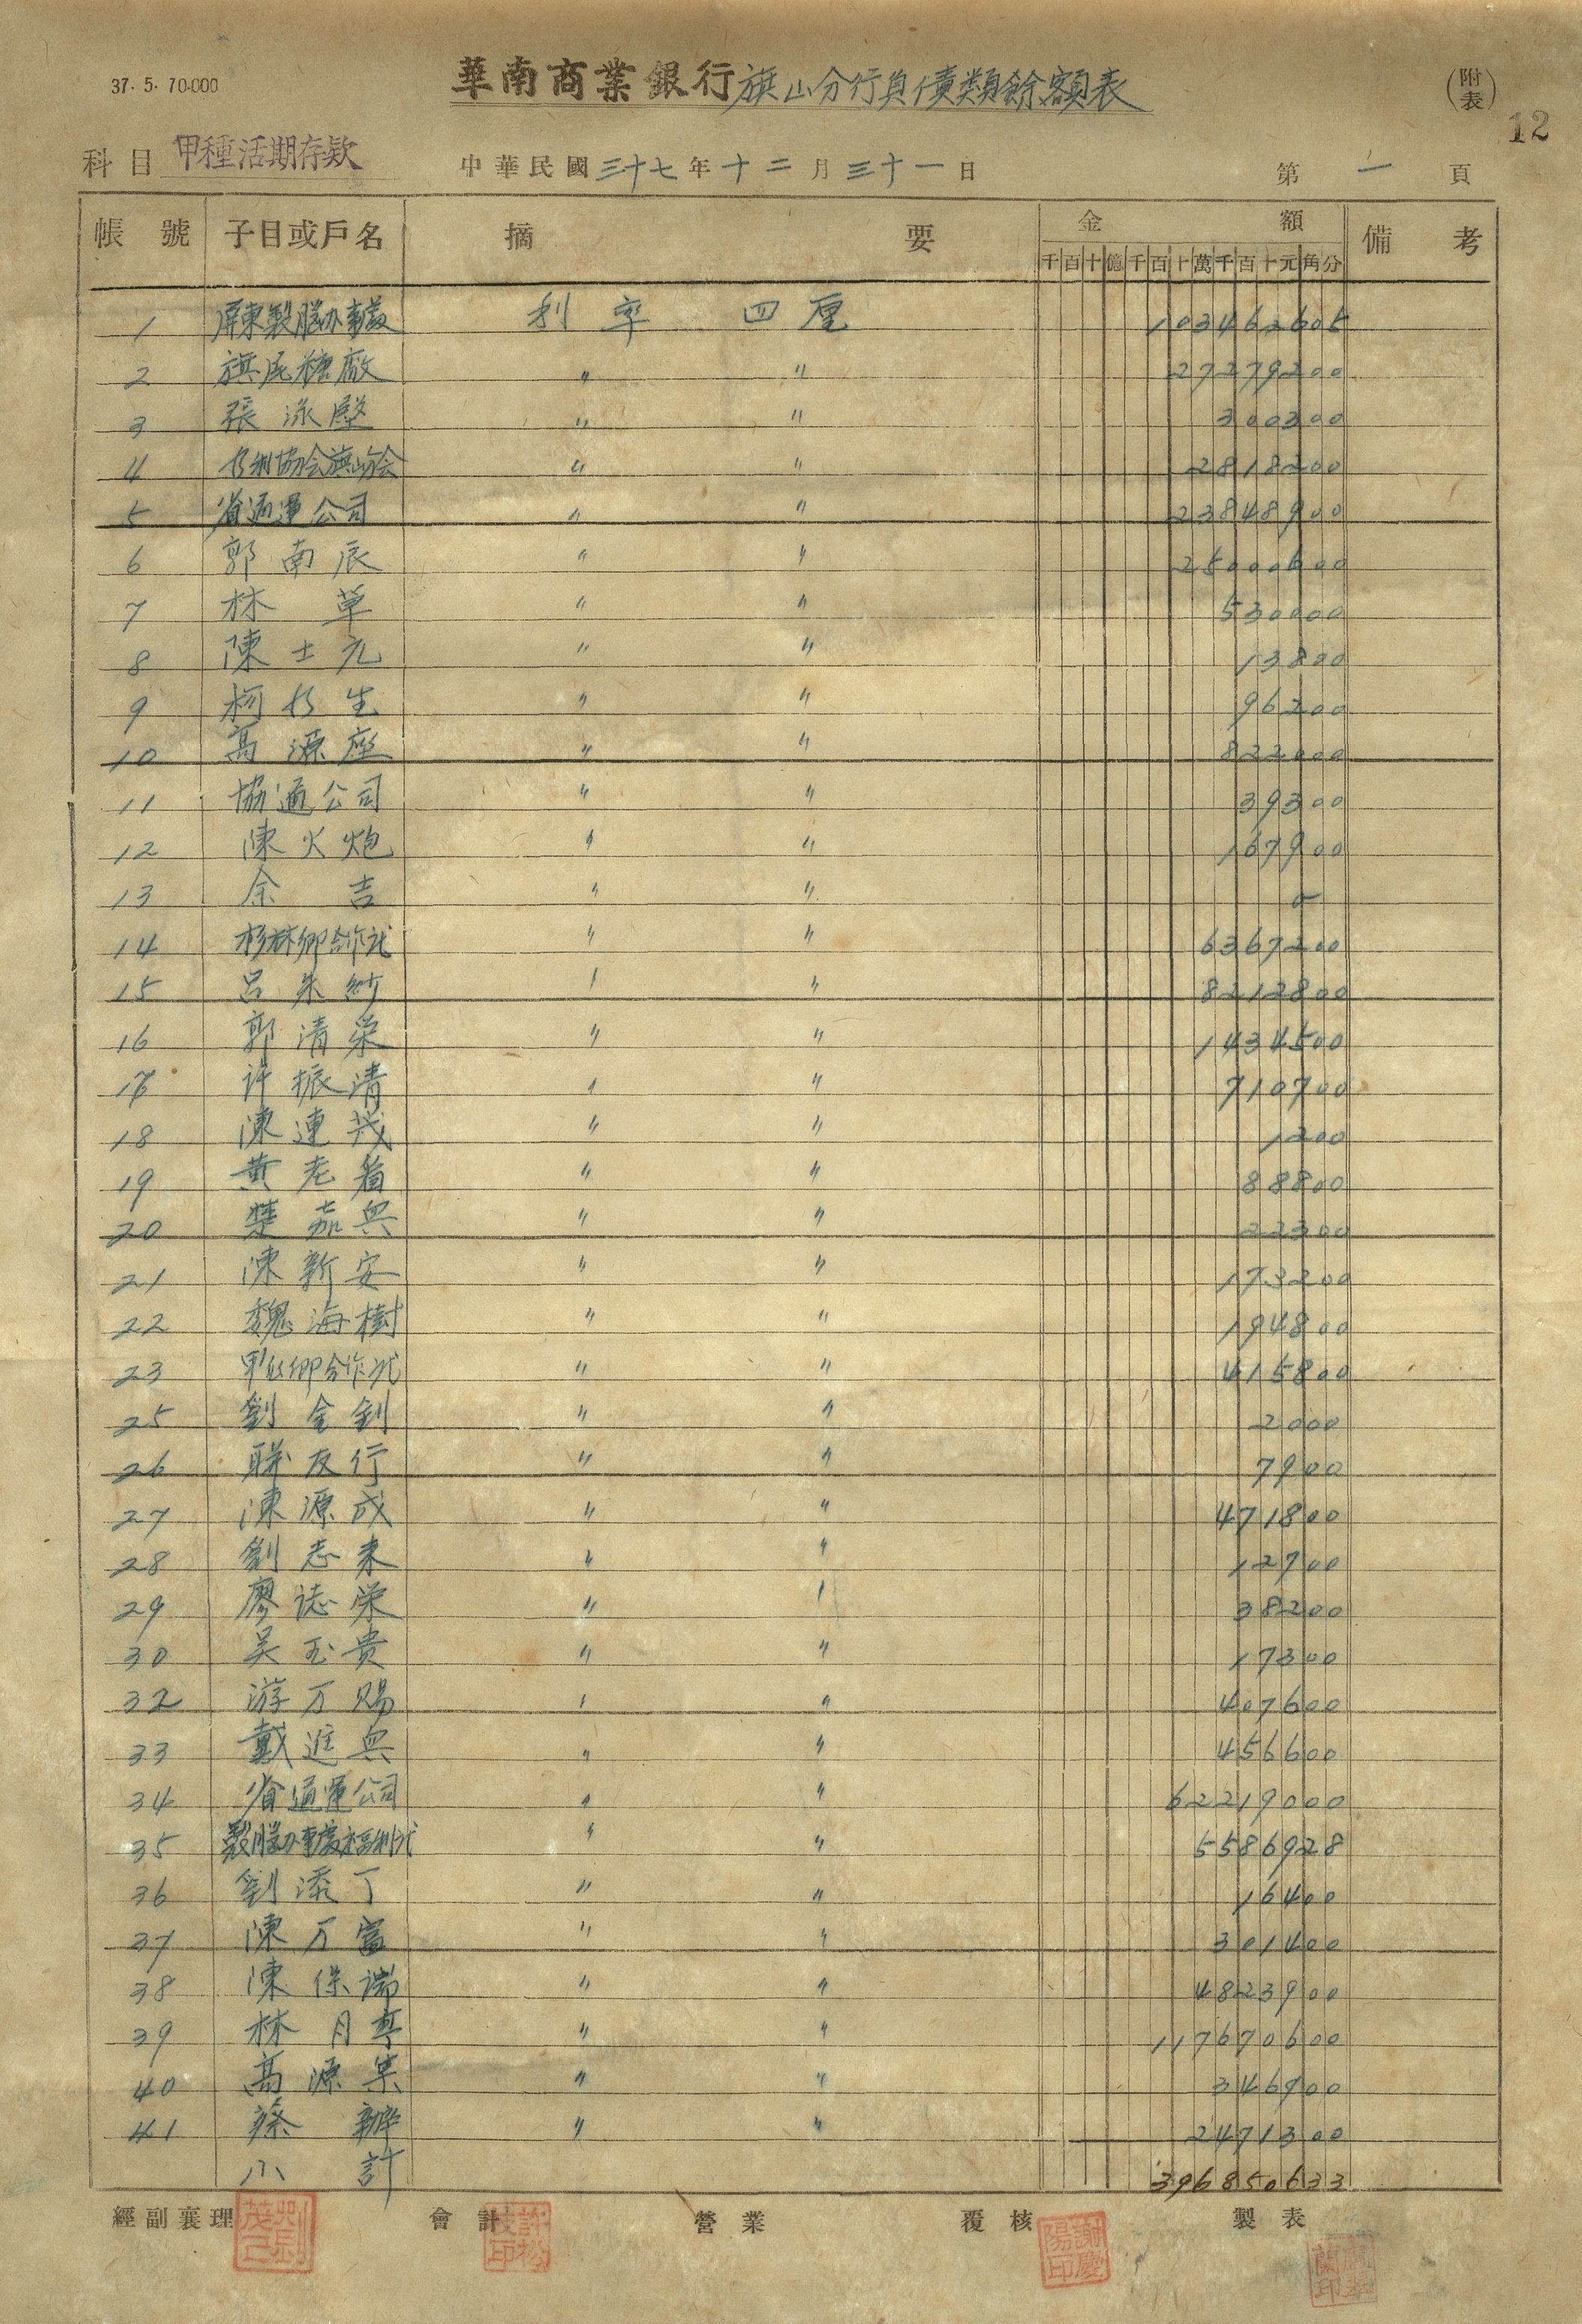 37. 5. 70.000
華南商業銀行旗山分行負債類餘額表
(附表)
12
科目 甲種活期存款 中華民國三十七年十二月三十一日 第一頁
帳號 子目或戶名 摘要 金額 備考
千百十億千百十萬千百十元角分
1 屏東製腦办事處 利率 四厘 103462605
2 旗尾糖廠 〃 〃 27279200
3 張泳墜 〃 〃 300300
4 協会旗山分会 〃 〃 2818200
5 省通運公司 〃 〃 23848900
6 郭南辰 〃 〃 25000600
7 林草 〃 〃 530000
8 陳士元 〃 〃 13800
9 柯生 〃 〃 96200
10 高源座 〃 〃 822000
11 協通公司 〃 〃 39300
12 陳火炮 〃 〃 167900
13 余吉 〃 〃 0
14 杉林鄉合作社 〃 〃 6367200
15 呂朱紗 〃 〃 8212800
16 郭清榮 〃 〃 1434500
17 許振清 〃 〃 710700
18 陳連茂 〃 〃 1200
19 黃老着 〃 〃 88800
20 楚嘉興 〃 〃 22300
21 陳新安 〃 〃 173200
22 魏海樹 〃 〃 194800
23 甲仙鄉合作社 〃 〃 415800
25 劉金釗 〃 〃 2000
26 聯友行 〃 〃 7900
27 陳源成 〃 〃 471800
28 劉志来 〃 〃 12700
29 廖誌榮 〃 〃 38200
30 吴玉貴 〃 〃 17300
32 游万賜 〃 〃 407600
33 戴進興 〃 〃 456600
34 省通運公司 〃 〃 62219000
35 製腦办事處福利社 〃 〃 5586928
36 劉添丁 〃 〃 16400
37 陳万富 〃 〃 301400
38 陳保瑞 〃 〃 4823900
39 林月亭 〃 〃 117670600
40 高源菓 〃 〃 346900
41 蔡辦 〃 〃 2471300
小計 396850633
經副襄理 會計 營業 覆核 製表
謝慶陽印